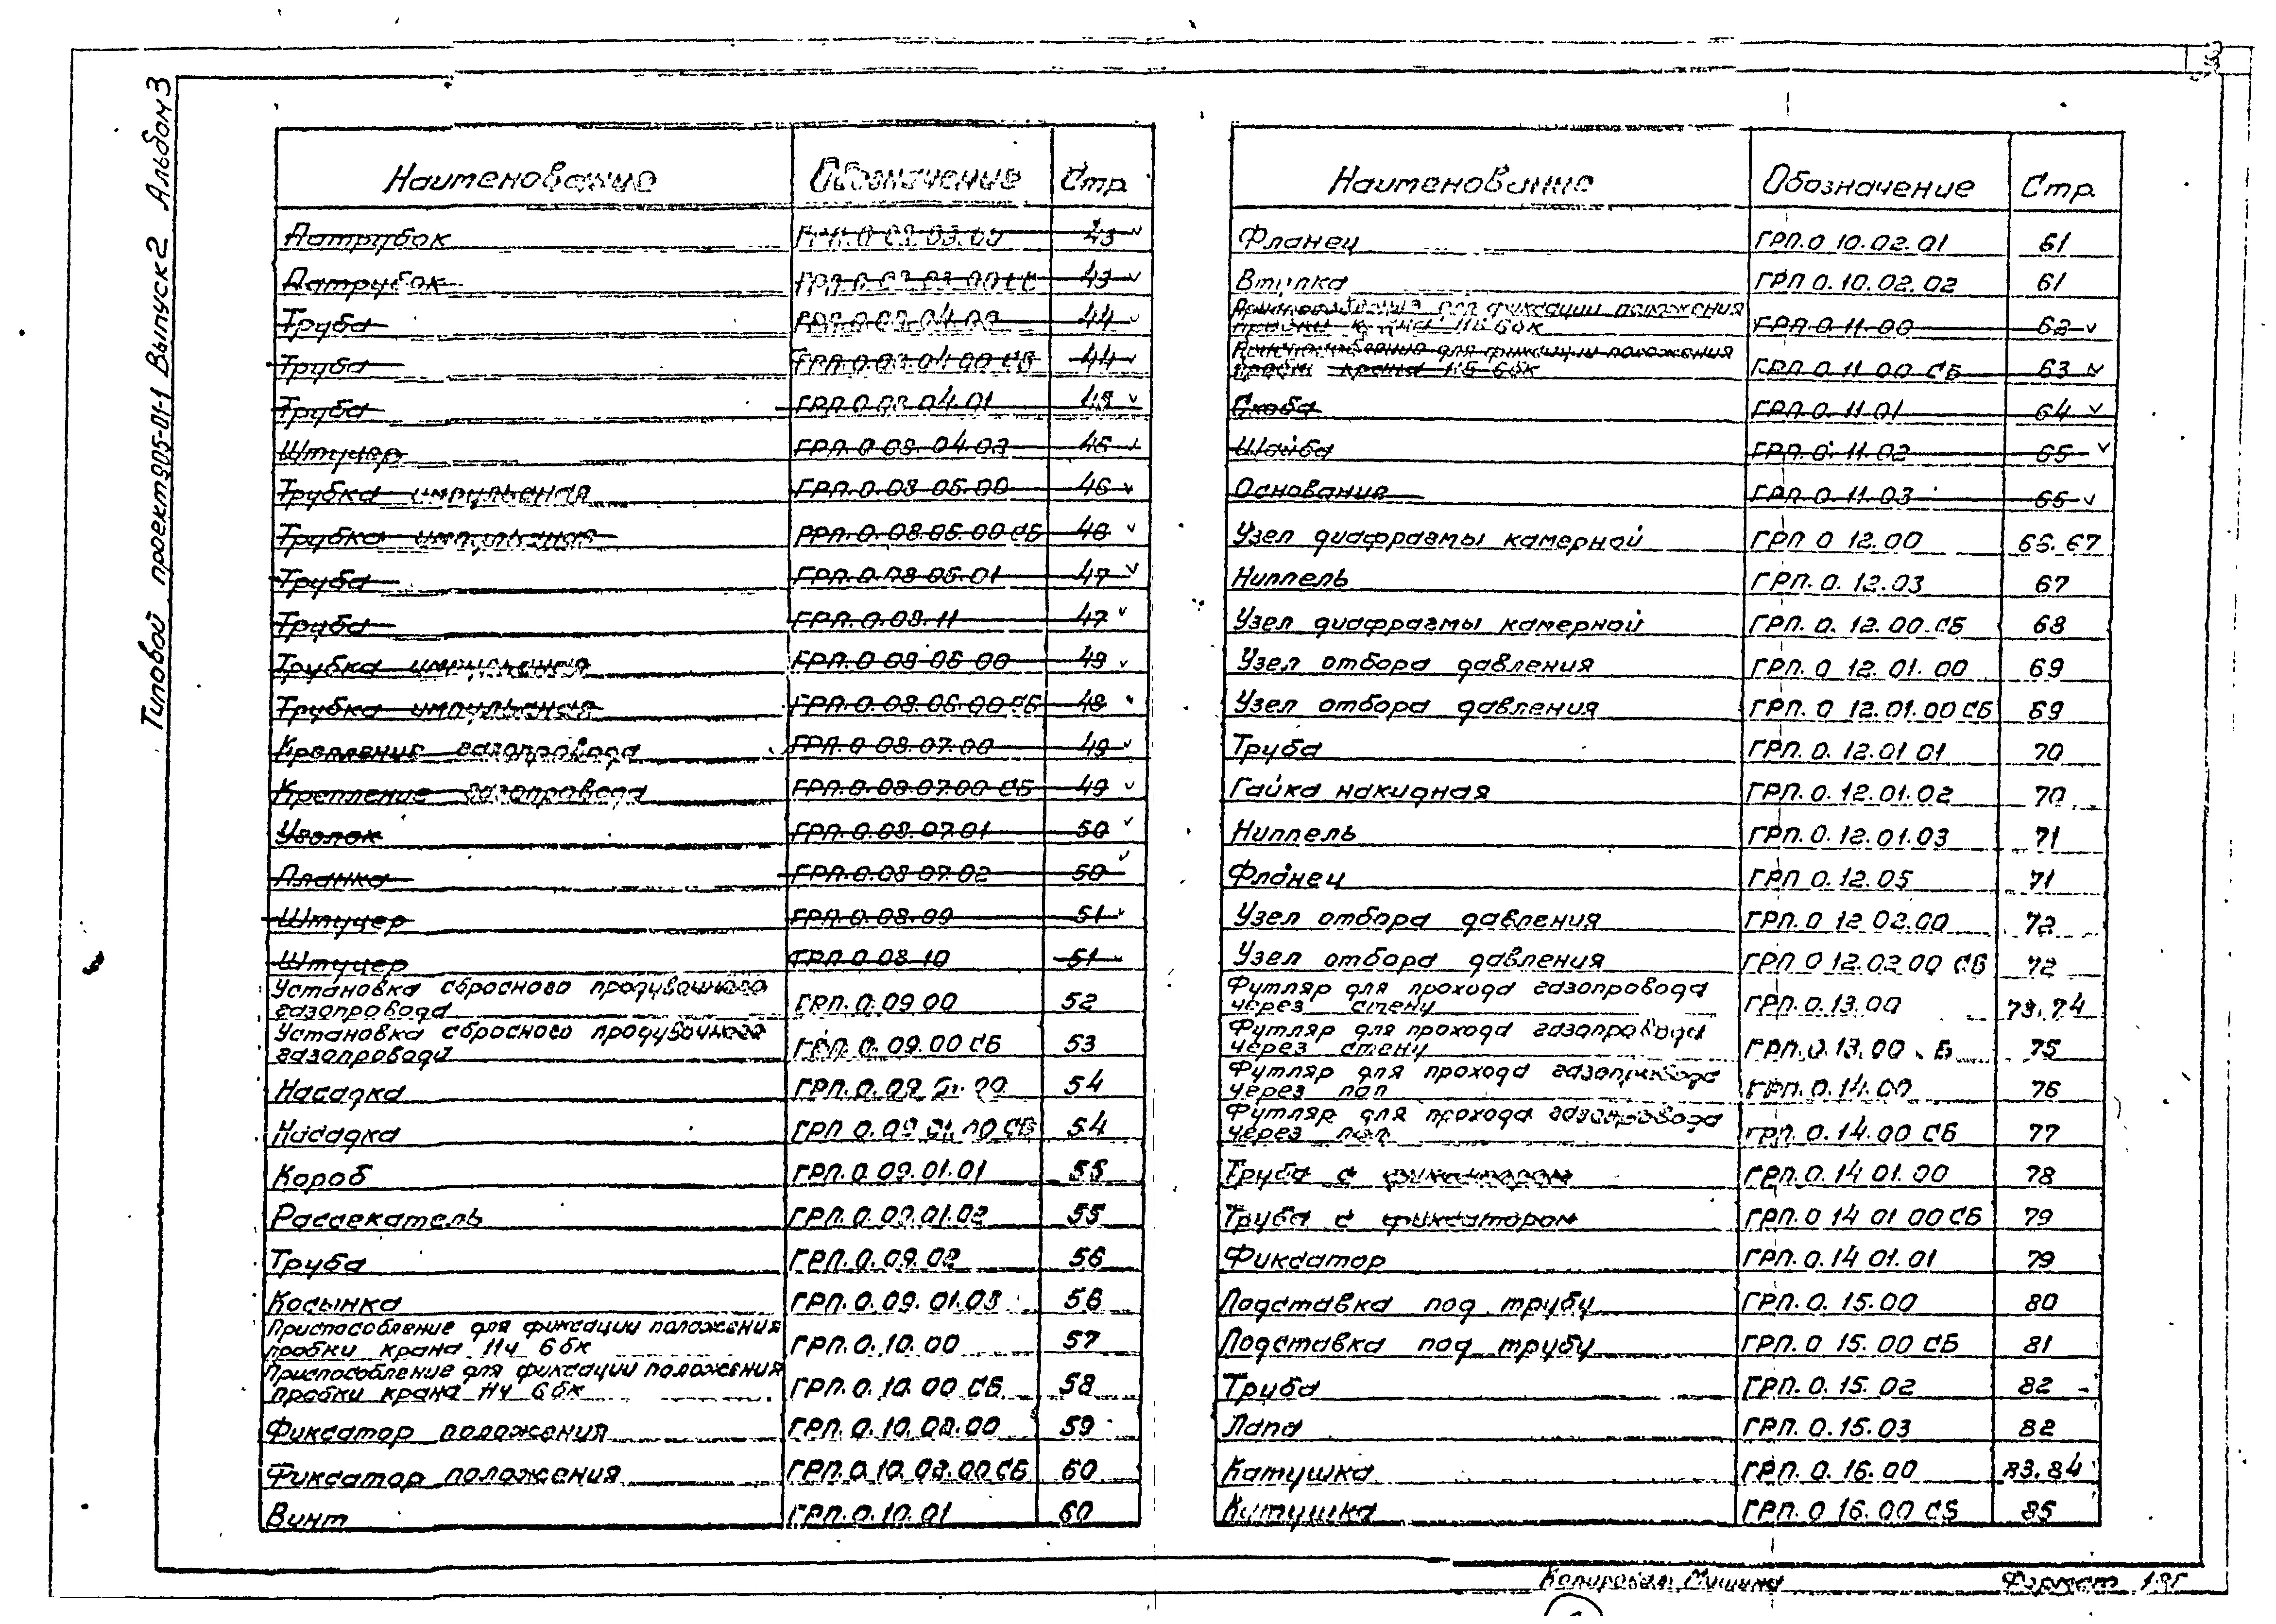 3
Типовой проект 905-01-1 Выпуск 2 Альбом 3
Наименование Обозначение Стр.
Патрубок 43
Патрубок 43
Труба 44
Труба 44
Труба ГРП.0.08.04.01
Штуцер ГРП.0.08.04.03 45
Трубка импульсная ГРП.0.08.05.00 46
Трубка импульсная ГРП.0.08.05.00 СБ 46
Труба ГРП.0.08.05.01 47
Труба ГРП.0.08.11 47
Трубка импульсная ГРП.0.08.06.00 48
Трубка импульсная ГРП.0.08.06.00 СБ 48
Крепление газопровода ГРП.0.08.07.00 49
Крепление газопровода ГРП.0.08.07.00 СБ 49
Уголок ГРП.0.08.07.01 50
Планка ГРП.0.08.07.02 50
Штуцер ГРП.0.08.09 51
Штуцер ГРП.0.08.10 51
Установка сбросного продувочного
газопровода ГРП.0.09.00 52
Установка сбросного продувочного
газопровода ГРП.0.09.00 СБ 53
Насадка ГРП.0.09.01.00 54
Насадка ГРП.0.09.01.00 СБ 54
Короб ГРП.0.09.01.01 55
Рассекатель ГРП.0.09.01.02 55
Труба ГРП.0.09.02 56
Косынка ГРП.0.09.01.03 56
Приспособление для фиксации положения
пробки крана 11ч 6бк ГРП.0.10.00 57
Приспособление для фиксации положения
пробки крана 11ч 6бк ГРП.0.10.00 СБ 58
Фиксатор положения ГРП.0.10.02.00 59
Фиксатор положения ГРП.0.10.02.00 СБ 60
Винт ГРП.0.10.01 60
Наименование Обозначение Стр.
Фланец ГРП.0.10.02.01 61
Втулка ГРП.0.10.02.02 61
Приспособление для фиксации положения
пробки крана 11Б 6бк ГРП.0.11.00 62
Приспособление для фиксации положения
пробки крана 11Б 6бк ГРП.0.11.00 СБ 63
Скоба ГРП.0.11.01 64
Шайба ГРП.0.11.02 65
Основание ГРП.0.11.03 65
Узел диафрагмы камерной ГРП.0.12.00 66.67
Ниппель ГРП.0.12.03 67
Узел диафрагмы камерной ГРП.0.12.00.СБ 68
Узел отбора давления ГРП.0.12.01.00 69
Узел отбора давления ГРП.0.12.01.00 СБ 69
Труба ГРП.0.12.01.01 70
Гайка накидная ГРП.0.12.01.02 70
Ниппель ГРП.0.12.01.03 71
Фланец ГРП.0.12.05 71
Узел отбора давления ГРП.0.12.02.00 72
Узел отбора давления ГРП.0.12.02.00 СБ 72
Футляр для прохода газопровода
через стену ГРП.0.13.00 73.74
Футляр для прохода газопровода
через стену ГРП.0.13.00 СБ 75
Футляр для прохода газопровода
через пол ГРП.0.14.00 76
Футляр для прохода газопровода
через пол ГРП.0.14.00 СБ 77
Труба с фиксатором ГРП.0.14.01.00 78
Труба с фиксатором ГРП.0.14.01.00 СБ 79
Фиксатор ГРП.0.14.01.01 79
Подставка под трубу ГРП.0.15.00 80
Подставка под трубу ГРП.0.15.00 СБ 81
Труба ГРП.0.15.02 82
Лапа ГРП.0.15.03 82
Катушка ГРП.0.16.00 83.84
Катушка ГРП.0.16.00 СБ 85
Копировал Формат